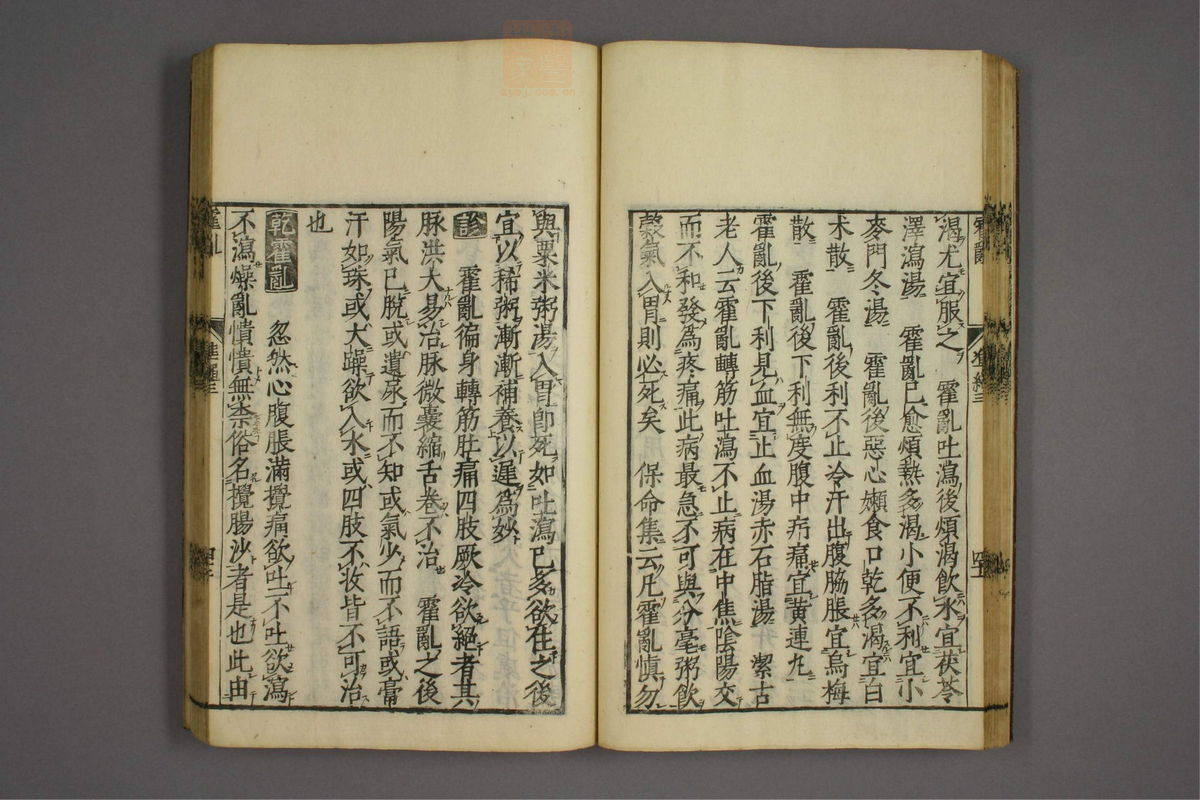 渴尤宜服之　霍亂吐瀉後煩渴飲水宜茯苓
澤瀉湯　霍亂已愈煩熱多渴小便不利宜小
麥門冬湯　霍亂後惡心嬾食口乾多渴宜白
朮散　霍亂後利不止冷汗出腹脇脹宜烏梅
散　霍亂後下利無度腹中㽱痛宜黃連丸
霍亂後下利見血宜止血湯赤石脂湯　潔古
老人云霍亂轉筋吐瀉不止病在中焦陰陽交
而不和發爲疼痛此病最急不可與分毫粥飲
穀氣入胃則必死矣　保命集云凡霍亂愼勿
與粟米粥湯入胃卽死如吐瀉已多欲住之後
宜以稀粥漸漸補養以遲爲妙
診　霍亂徧身轉筋肚痛四肢厥冷欲絕者其
脉洪大易治脉微囊縮舌卷不治　霍亂之後
陽氣已脫或遺尿而不知或氣少而不語或膏
汗如珠或大躁欲入水或四肢不收皆不可治
也
乾霍亂　忽然心腹脹滿攪痛欲吐不吐欲瀉
不瀉燥亂憒憒無柰俗名攪腸沙者是也此由
霍亂